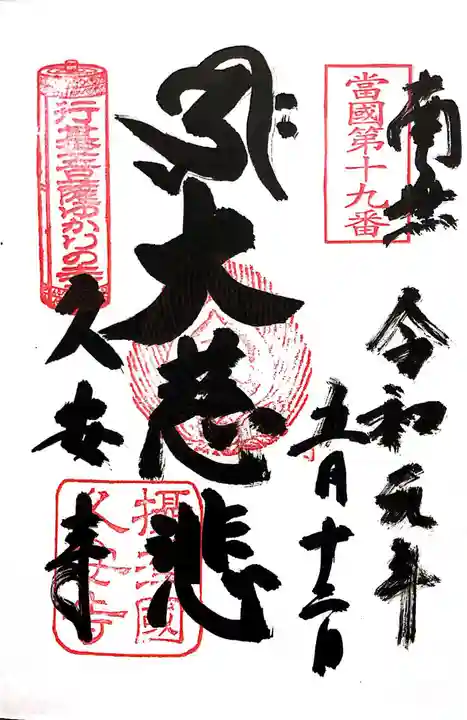 當國第十九番
南無
令和元年
五月十三日
大慈悲
行基菩薩ゆかりの寺
久安寺
摂津國
久安寺